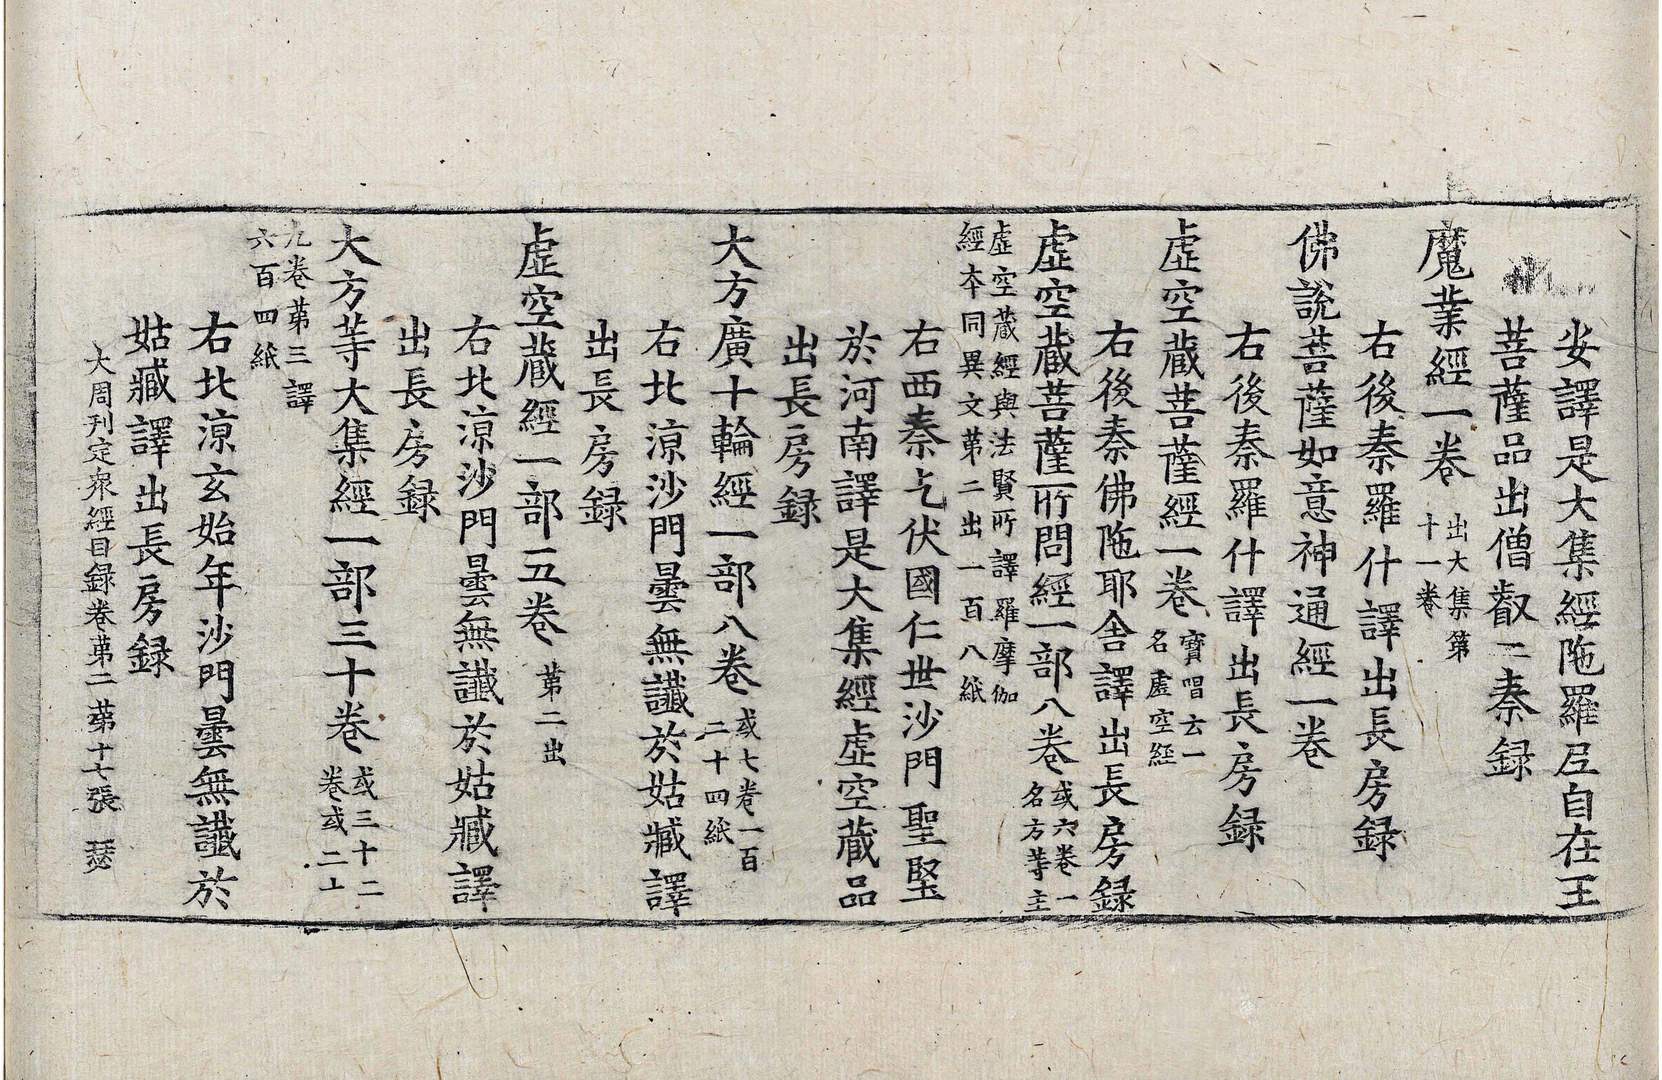 安譯是大集經陁羅尼自在王
菩薩品出僧叡二秦録
魔業經一卷出大集第
十一卷
右後秦羅什譯出長房録
佛說菩薩如意神通經一卷
右後秦羅什譯出長房録
虛空藏菩薩經一卷寶唱云一
名虛空經
右後秦佛陁耶舍譯出長房録
虛空藏菩薩所問經一部八卷或六卷一
名方等主
虛空藏經與法賢所譯羅摩伽
經本同異文第二出一百八紙
右西秦乞伏國仁世沙門聖堅
於河南譯是大集經虛空藏品
出長房録
大方廣十輪經一部八卷或七卷一百
二十四紙
右北涼沙門曇無讖於姑臧譯
出長房録
虛空藏經一部五卷第二出
右北涼沙門曇無讖於姑臧譯
出長房録
大方等大集經一部三十卷或三十二
卷或二十
九卷第三譯
六百四紙
右北涼玄始年沙門曇無讖於
姑臧譯出長房録
大周刋定衆經目録卷第二 第十七張 瑟